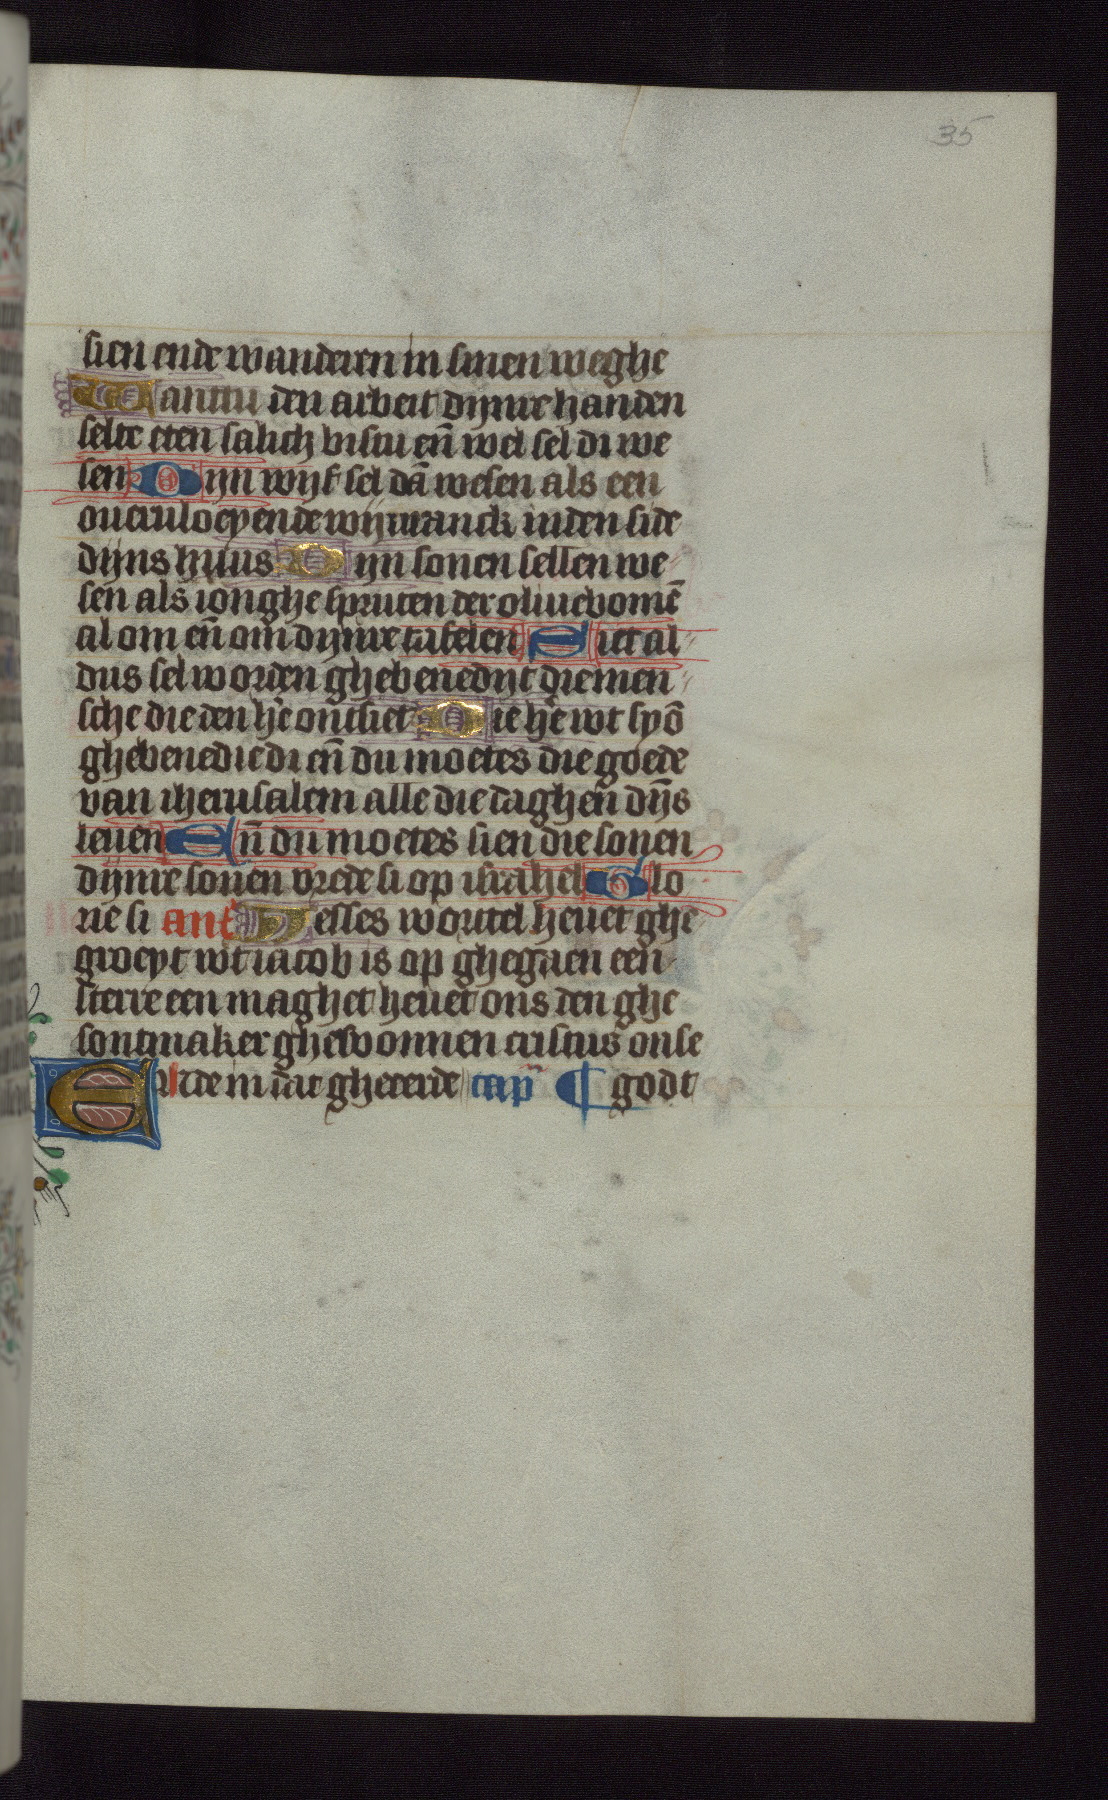 35
sien ende wanderen in sinen weghe
Wanttu den arbeit dijnre handen
selte eten salich bistu en̄ wel sel di we
sen Dijn wijf sel dā wesen als een
oueruloeyende wijnranck in den side
dijns huus Dijn sonen sellen we
sen als ionghe spruten der oliuebomē
al om en̄ om dijnre tafelen Siet al
dus sel worden ghebenedijt die men
sche die den hē ontsiet Die hē wt syō
ghebenedie di en̄ du moetes die goede
van iherusalem alle die daghen dijs
leuen En̄ du moetes sien die sonen
dijnre sonen vrede si op israhel Glo
rie si ant Iesses wortel heuet ghe
groeyt wt iacob is op ghegaen een
sterre een maghet heuet ons den ghe
sontmaker ghewonnen cristus onse
god